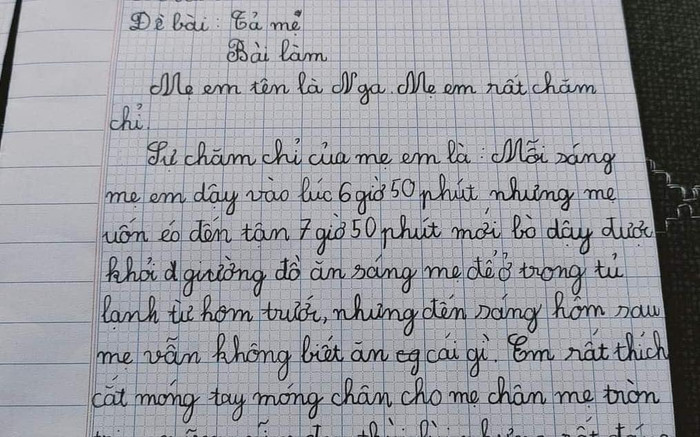 Đề bài: Tả mẹ
Bài làm
Mẹ em tên là Nga. Mẹ em rất chăm
chỉ.
Sự chăm chỉ của mẹ em là: Mỗi sáng
mẹ em dậy vào lúc 6 giờ 50 phút nhưng mẹ
uốn éo đến tân 7 giờ 50 phút mới bò dậy được
khỏi giường đồ ăn sáng mẹ để ở trong tủ
lạnh từ hôm trước, nhưng đến sáng hôm sau
mẹ vẫn không biết ăn cái gì. Em rất thích
cắt móng tay móng chân cho mẹ chân mẹ tròn